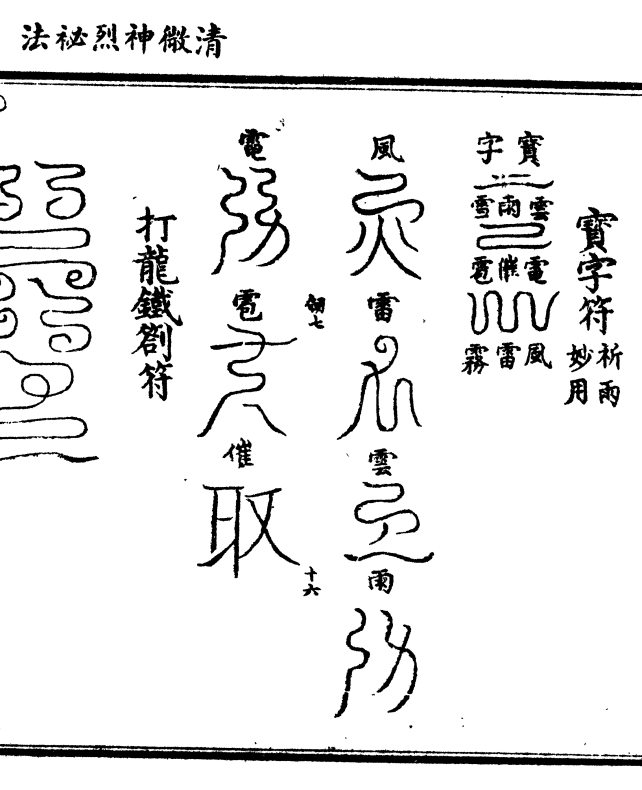 清微神烈祕法
寶字符
祈雨
妙用
寶字
雲雨雪
電催雹
風雷霧
風
雷
雲
雨
劒七
十六
電
雹
催
打龍鐵劄符